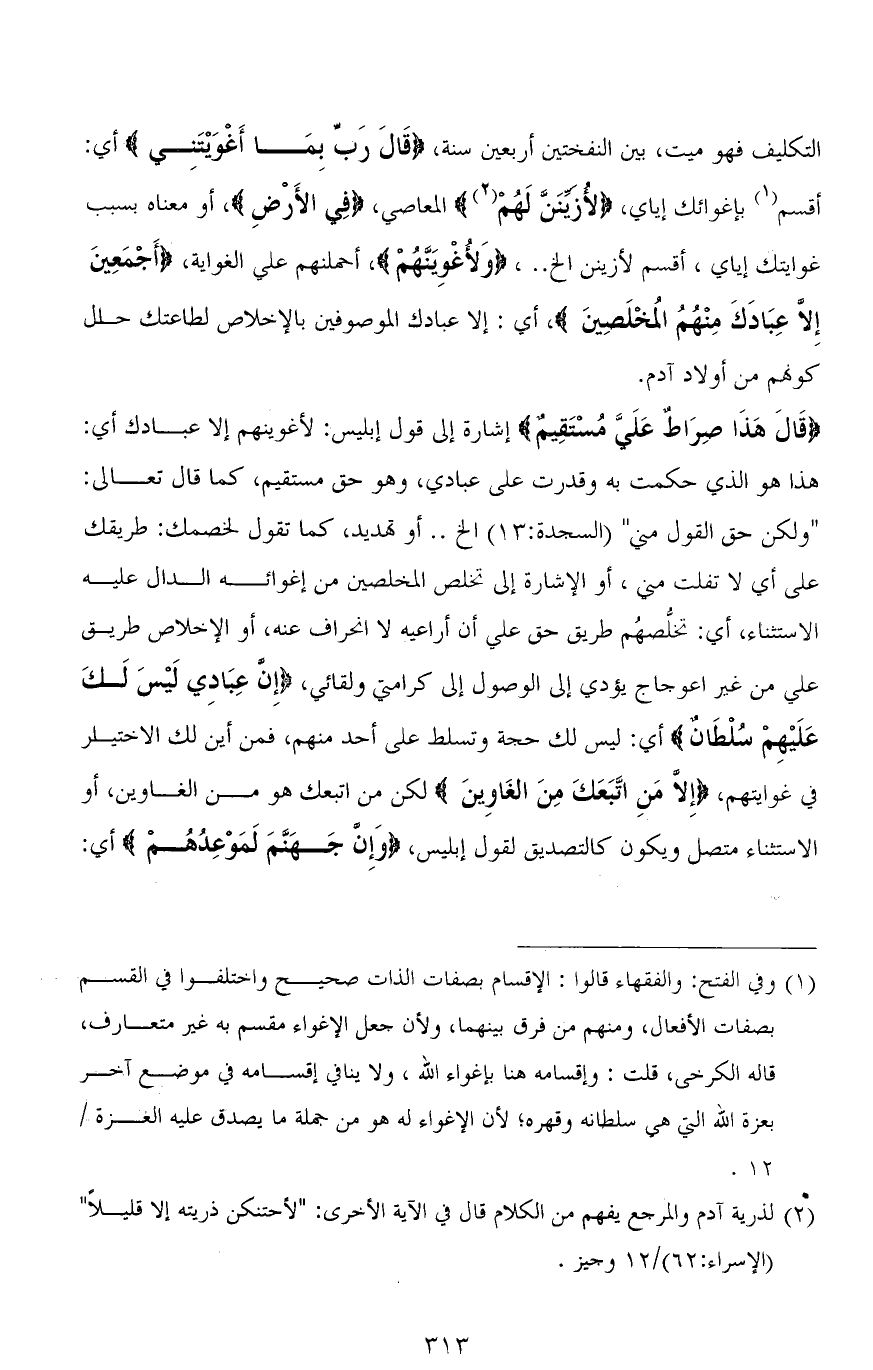 التكليف فهو ميت، بين النفختين أربعين سنة، ﴿قَالَ رَبِّ بِمَا أَغْوَيْتَنِي﴾ أي:
أقسم(١) بإغوائك إياي، ﴿لأُزَيِّنَنَّ لَهُمْ(٢)﴾ المعاصي، ﴿فِي الأَرْضِ﴾، أو معناه بسبب
غوايتك إياي ، أقسم لأزينن الخ.. ، ﴿وَلأُغْوِيَنَّهُمْ﴾، أحملنهم علي الغواية، ﴿أَجْمَعِينَ
إِلاَّ عِبَادَكَ مِنْهُمُ الُمْخْلَصِينَ ﴾، أي : إلا عبادك الموصوفين بالإخلاص لطاعتك حلل
كونهم من أولاد آدم.
﴿قَالَ هَذَا صِرَاطٌ عَلَيَّ مُسْتَقِيمٌ﴾ إشارة إلى قول إبليس: لأغوينهم إلا عبادك أي:
هذا هو الذي حكمت به وقدرت على عبادي، وهو حق مستقيم، كما قال تعالى:
"ولكن حق القول مني" (السجدة:١٣) الخ .. أو تهديد، كما تقول لخصمك: طريقك
على أي لا تفلت مني ، أو الإشارة إلى تخلص المخلصين من إغوائه الدال عليه
الاستثناء، أي: تخلُّصهُم طريق حق علي أن أراعيه لا انحراف عنه، أو الإخلاص طريق
علي من غير اعوجاج يؤدي إلى الوصول إلى كرامتي ولقائي، ﴿إِنَّ عِبَادِي لَيْسَ لَكَ
عَلَيْهِمْ سُلْطَانٌ﴾ أي: ليس لك حجة وتسلط على أحد منهم، فمن أين لك الاختيلر
في غوايتهم، ﴿إِلاَّ مَنِ اتَّبَعَكَ مِنَ الغَاوِينَ ﴾ لكن من اتبعك هو من الغاوين، أو
الاستثناء متصل ويكون كالتصديق لقول إبليس، ﴿وَإِنَّ جَهَنَّمَ لَمَوْعِدُهُمْ ﴾ أي:
(١) وفي الفتح: والفقهاء قالوا : الإقسام بصفات الذات صحيح واختلفوا في القسم
بصفات الأفعال، ومنهم من فرق بينهما، ولأن جعل الإغواء مقسم به غير متعارف،
قاله الكرخى، قلت : وإقسامه هنا بإغواء الله ، ولا ينافي إقسامه في موضع آخر
بعزة الله التي هي سلطانه وقهره؛ لأن الإغواء له هو من جملة ما يصدق عليه الغزة /
١٢ .
(٢) لذرية آدم والمرجع يفهم من الكلام قال في الآية الأخرى: "لأحتنكن ذريته إلا قليلاً"
(الإسراء:٦٢)/١٢ وجيز .
٣١٣